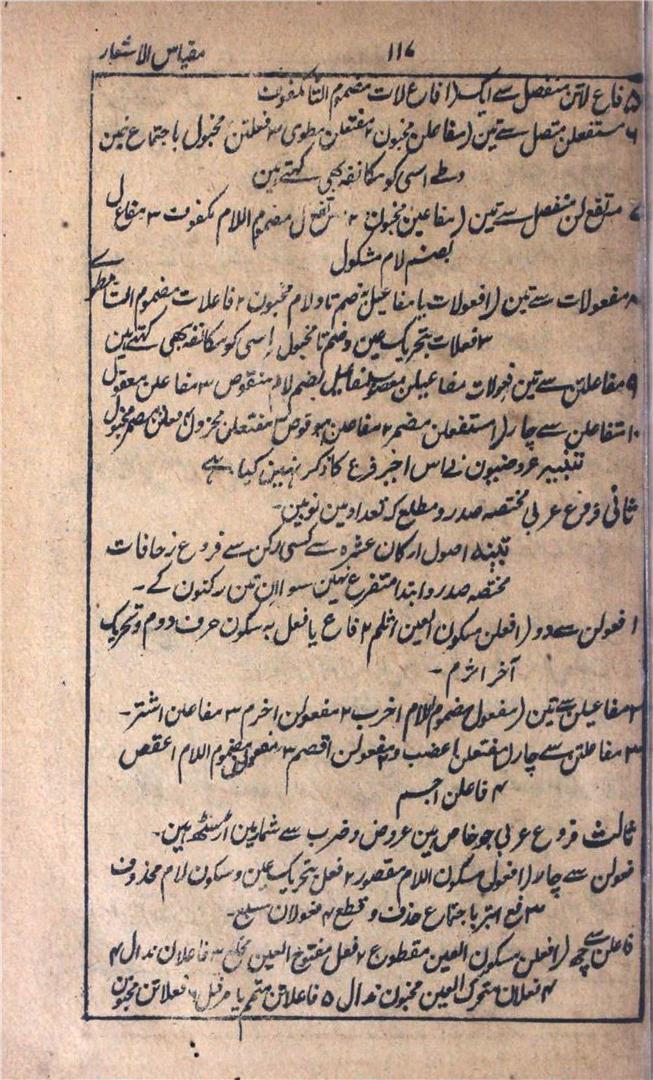 ۱۱۷ مقیاس الاشعار
۵ فاع لاتن منفصل سے ایک (۱ فاع لات مضموم التا مکفوف
۶ مستفعلن متصل سے تین (۱ مفاعلن مخبون ۲ مفتعلن مطوی ۳ فعلتن مخبول باجتماع خبن
وطے اسی کو مکانفہ بھی کہتے ہین
۷ مس تفع لن منفصل سے تین (۱ مفاعلن مخبون ۲ مس تفع ل مضموم اللام مکفوف ۳ مفاع ل
بضم لام مشکول
۸ مفعولات سے تین (۱ فعولات یا مفاعیل بضم تا و لام مخبون ۲ فاعلات مضموم التا مطوے
۳ فعلات بتحریک عین وضم تا مخبول اسی کو مکانفہ بھی کہتے ہین
۹ مفاعلتن سے تین مفاعیلن معصوب مفاعیل بضم لام منقوص ۳ مفاعلن معقول
۱۰ متفاعلن سے چار (۱ مستفعلن مضمر ۲ مفاعلن موقوص ۳ مفتعلن مخزول
تنبیہ عروضیون نے اس اخیر فرع کا ذکر نہین کیا ہے
ثانی فروع عربی مختصہ صدر و مطلع کہ تعداد مین نو ہین۔
تنبیہ اصول ارکان عشرہ سے کسی رکن سے فروع زحافات
مختصہ صدر و ابتدا متفرع نہین سوا ان تین رکنون کے۔
۱ فعولن سے دو (۱ فعلن بسکون العین اثلم ۲ فاع یا فعل بہ سکون حرف دوم و تحریک
آخر اثرم۔
۲ مفاعیلن سے تین (۱ مفعول مضموم اللام اخرب ۲ مفعولن اخرم ۳ مفاعلن اشتر۔
۳ مفاعلتن سے چار (۱ مفتعلن اعضب ۲ مفعولن اقصم ۳ مفعول مضموم اللام اعقص
۴ فاعلن اجم
ثالث فروع عربی جو خاص ہین عروض و ضرب سے شمار مین اڑسٹھ ہین۔
فعولن سے چار (۱ فعول بسکون اللام مقصور ۲ فعل بتحریک عین و سکون لام محذوف
۳ فع ابتر باجتماع حذف و قطع ۴ فعولان مسبغ۔
فاعلن سے چھ (۱ فعلن بسکون العین مقطوع ۲ فعل مفتوح العین ۳ فاعلان مذال ۴
۴ فعلان متحرک العین مخبون مذال ۵ فاعلاتن متمم یا مرفل ۶ فعلاتن مخبون